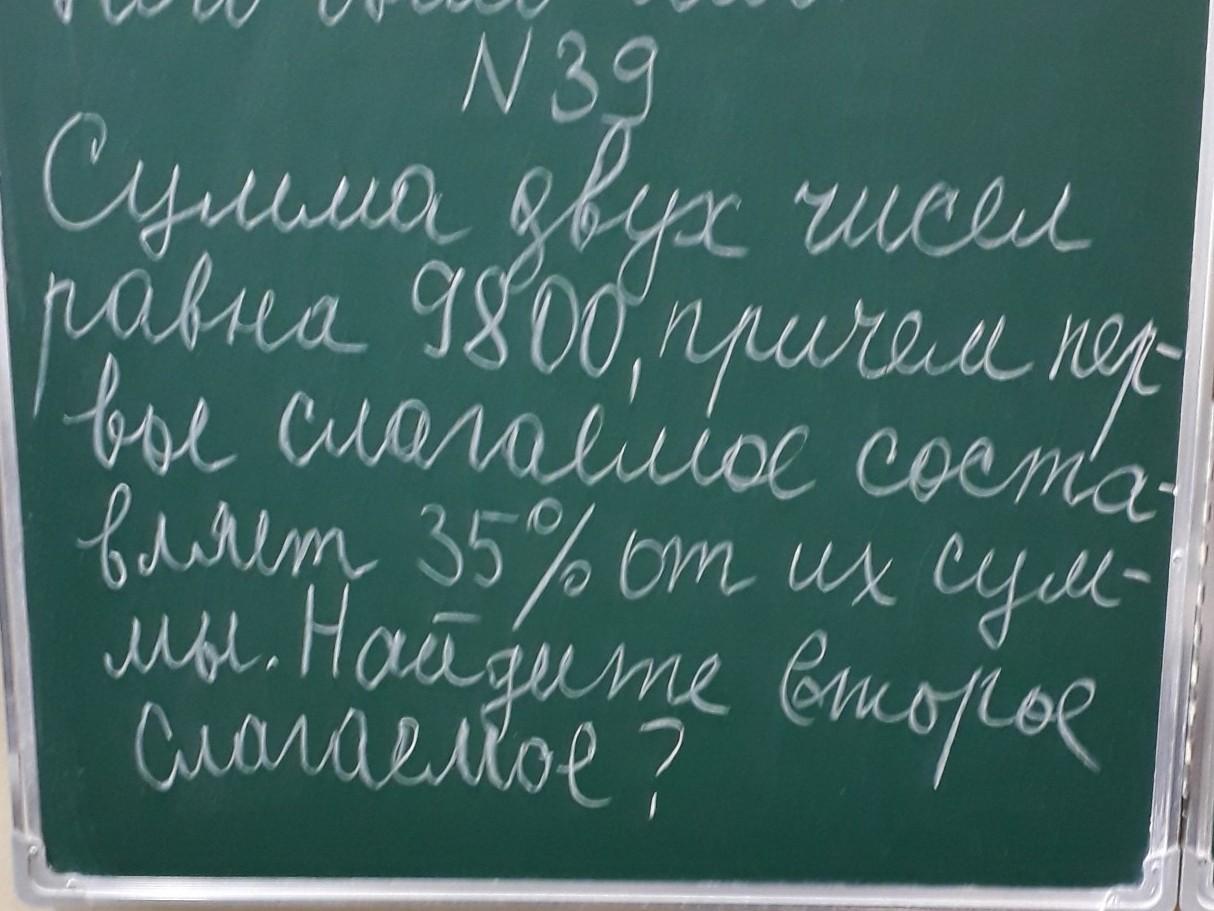 N 39
Сумма двух чисел
равна 9800, причем пер-
вое слагаемое соста-
вляет 35% от их сум-
мы. Найдите второе
слагаемое?